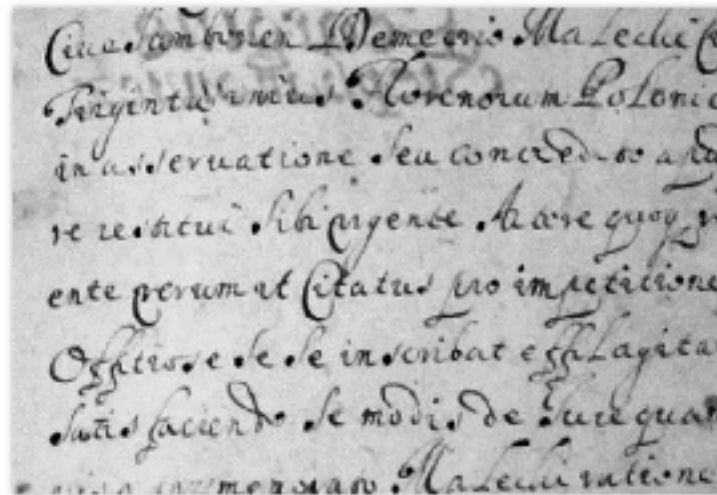 Cive Samborien Demetrio Malechi
Triginta unius Florenorum Poloni
in asservatione seu concredito apd
re restitui sibi urgente Actore quoq
ente verum ut Citatus pro impetitione
Officiose se se inscribat efflagita
satisfaciendo se modis de Jure qua
memorato Malechi ratione